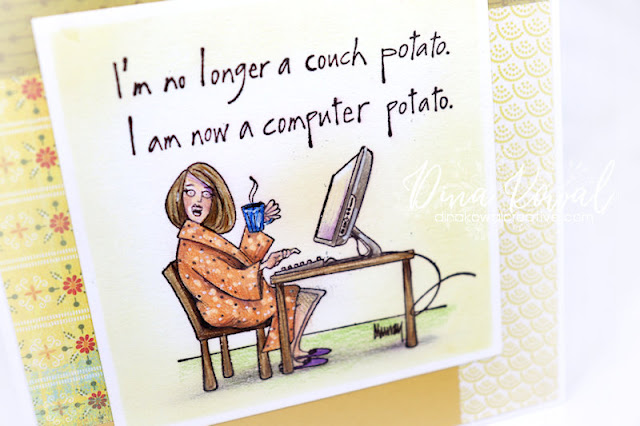 I'm no longer a couch potato.
I am now a computer potato.
Dina Kowal
dinakowalcreative.com